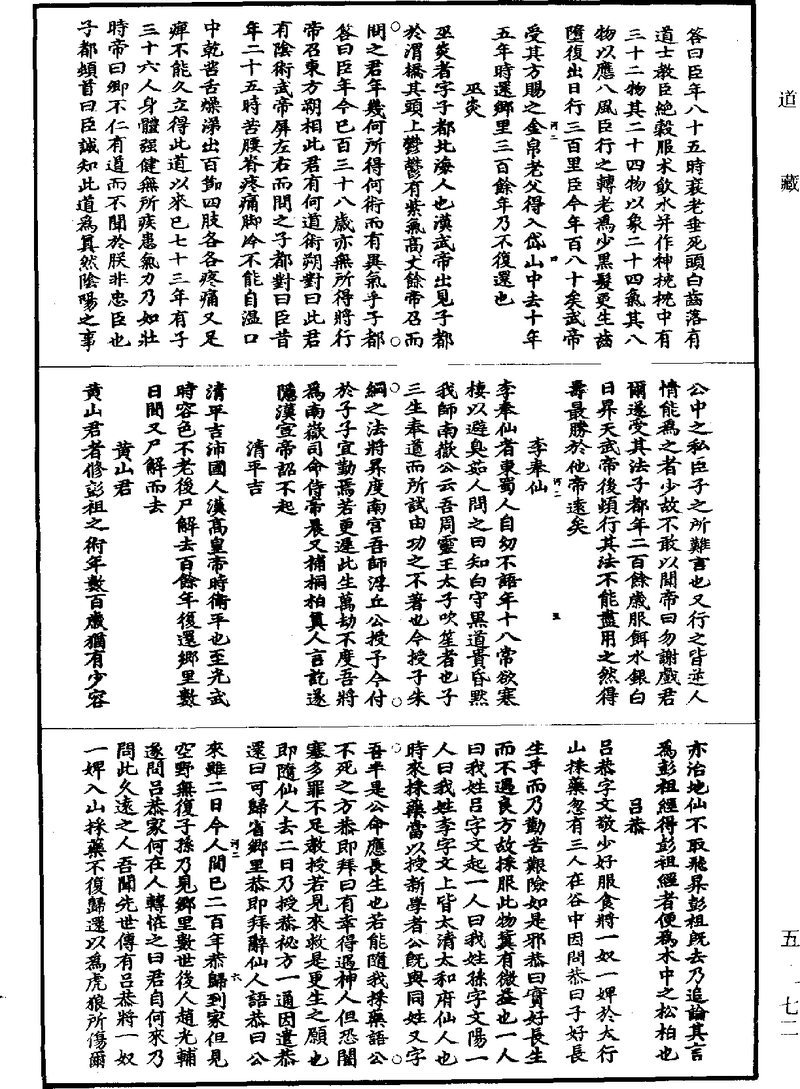 道藏
答曰臣年八十五時衰老垂死頭白齒落有
道士教臣絕穀服朮飲水并作神枕枕中有
三十二物其二十四物以象二十四氣其八
物以應八風臣行之轉老爲少黑髮更生齒
墮復出日行三百里臣今年百八十矣武帝
受其方賜之金帛老父得入岱山中去十年
五年時還鄉里三百餘年乃不復還也
巫炎
巫炎者字子都北海人也漢武帝出見子都
於渭橋其頭上鬱鬱有紫氣高丈餘帝召而
問之君年幾何所得何術而有異氣乎子都
答曰臣年今已百三十八歲亦無所得將行
帝召東方朔相此君有何道術朔對曰此君
有陰術武帝屏左右而問之子都對曰臣昔
年二十五時苦腰脊疼痛脚冷不能自溫口
中乾苦舌燥涕出百節四肢各各疼痛又足
痹不能久立得此道以來已七十三年有子
三十六人身體強健無所疾患氣力乃如壯
時帝曰卿不仁有道而不聞於朕非忠臣也
子都頓首曰臣誠知此道爲眞然陰陽之事
公中之私臣子之所難言也又行之皆逆人
情能爲之者少故不敢以聞帝曰勿謝戲君
爾遂受其法子都年二百餘歲服餌水銀白
日昇天武帝後頗行其法不能盡用之然得
壽最勝於他帝遠矣
李奉仙
李奉仙者東蜀人自幼不語年十八常欲寒
棲以避臭茹人問之曰知白守黑道貴昏默
我師南嶽公云吾周靈王太子吹笙者也子
三生奉道而所試由功之不著也今授子朱
綱之法將昇度南宮吾師浮丘公授子令付
於子子宜勤焉若更遲此生萬劫不度吾將
爲南嶽司命侍帝晨又補桐柏眞人言訖遂
隱漢宣帝詔不起
清平吉
清平吉沛國人漢高皇帝時衛平也至光武
時容色不老後尸解去百餘年復還鄉里數
日間又尸解而去
黃山君
黃山君者修彭祖之術年數百歲猶有少容
亦治地仙不取飛昇彭祖既去乃追論其言
爲彭祖經得彭祖經者便爲木中之松柏也
呂恭
呂恭字文敬少好服食將一奴一婢於大行
山採藥忽有三人在谷中因問恭曰子好長
生乎而乃勤苦艱險如是邪恭曰實好長生
而不遇良方故採服此物冀有微益也一人
曰我姓呂字文起一人曰我姓孫字文陽一
人曰我姓李字文上皆太清太和府仙人也
時來採藥當以授新學者公既與同姓又字
吾半是公命應長生也若能隨我採藥語公
不死之方恭即拜曰有幸得遇神人但恐闇
塞多罪不足教授若見來救是更生之願也
即隨仙人去二日乃授恭祕方一通因遣恭
還曰可歸省鄉里恭即拜辭仙人語恭曰公
來雖二日今人間已二百年恭歸到家但見
空野無復子孫乃見鄉里數世後人趙光輔
遂問呂恭家何在人轉怪之曰君自何來乃
問此久遠之人吾聞先世傳有呂恭將一奴
一婢入山採藥不復歸還以爲虎狼所傷爾
五‧七二